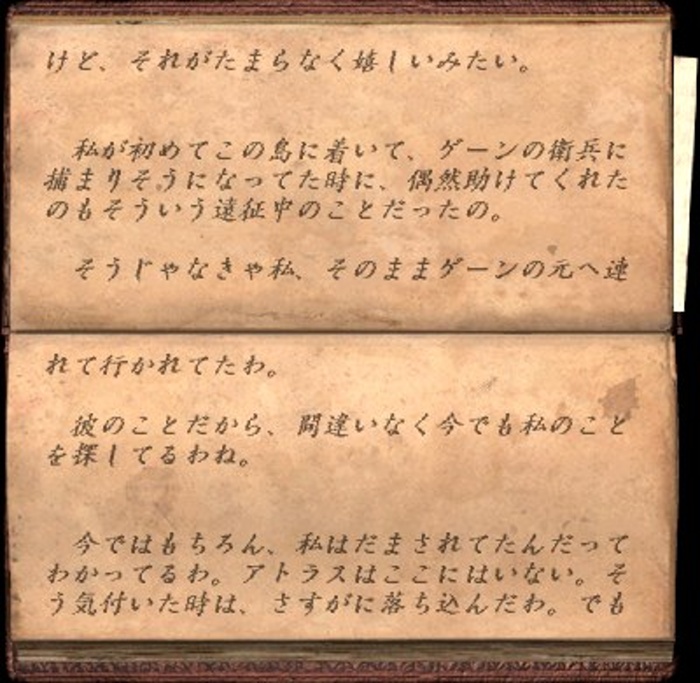 けど、それがたまらなく嬉しいみたい。
私が初めてこの島に着いて、ゲーンの衛兵に
捕まりそうになってた時に、偶然助けてくれた
のもそういう遠征中のことだったの。
そうじゃなきゃ私、そのままゲーンの元へ連
れて行かれてたわ。
彼のことだから、間違いなく今でも私のこと
を探してるわね。
今ではもちろん、私はだまされてたんだって
わかってるわ。アトラスはここにはいない。そ
う気付いた時は、さすがに落ち込んだわ。でも